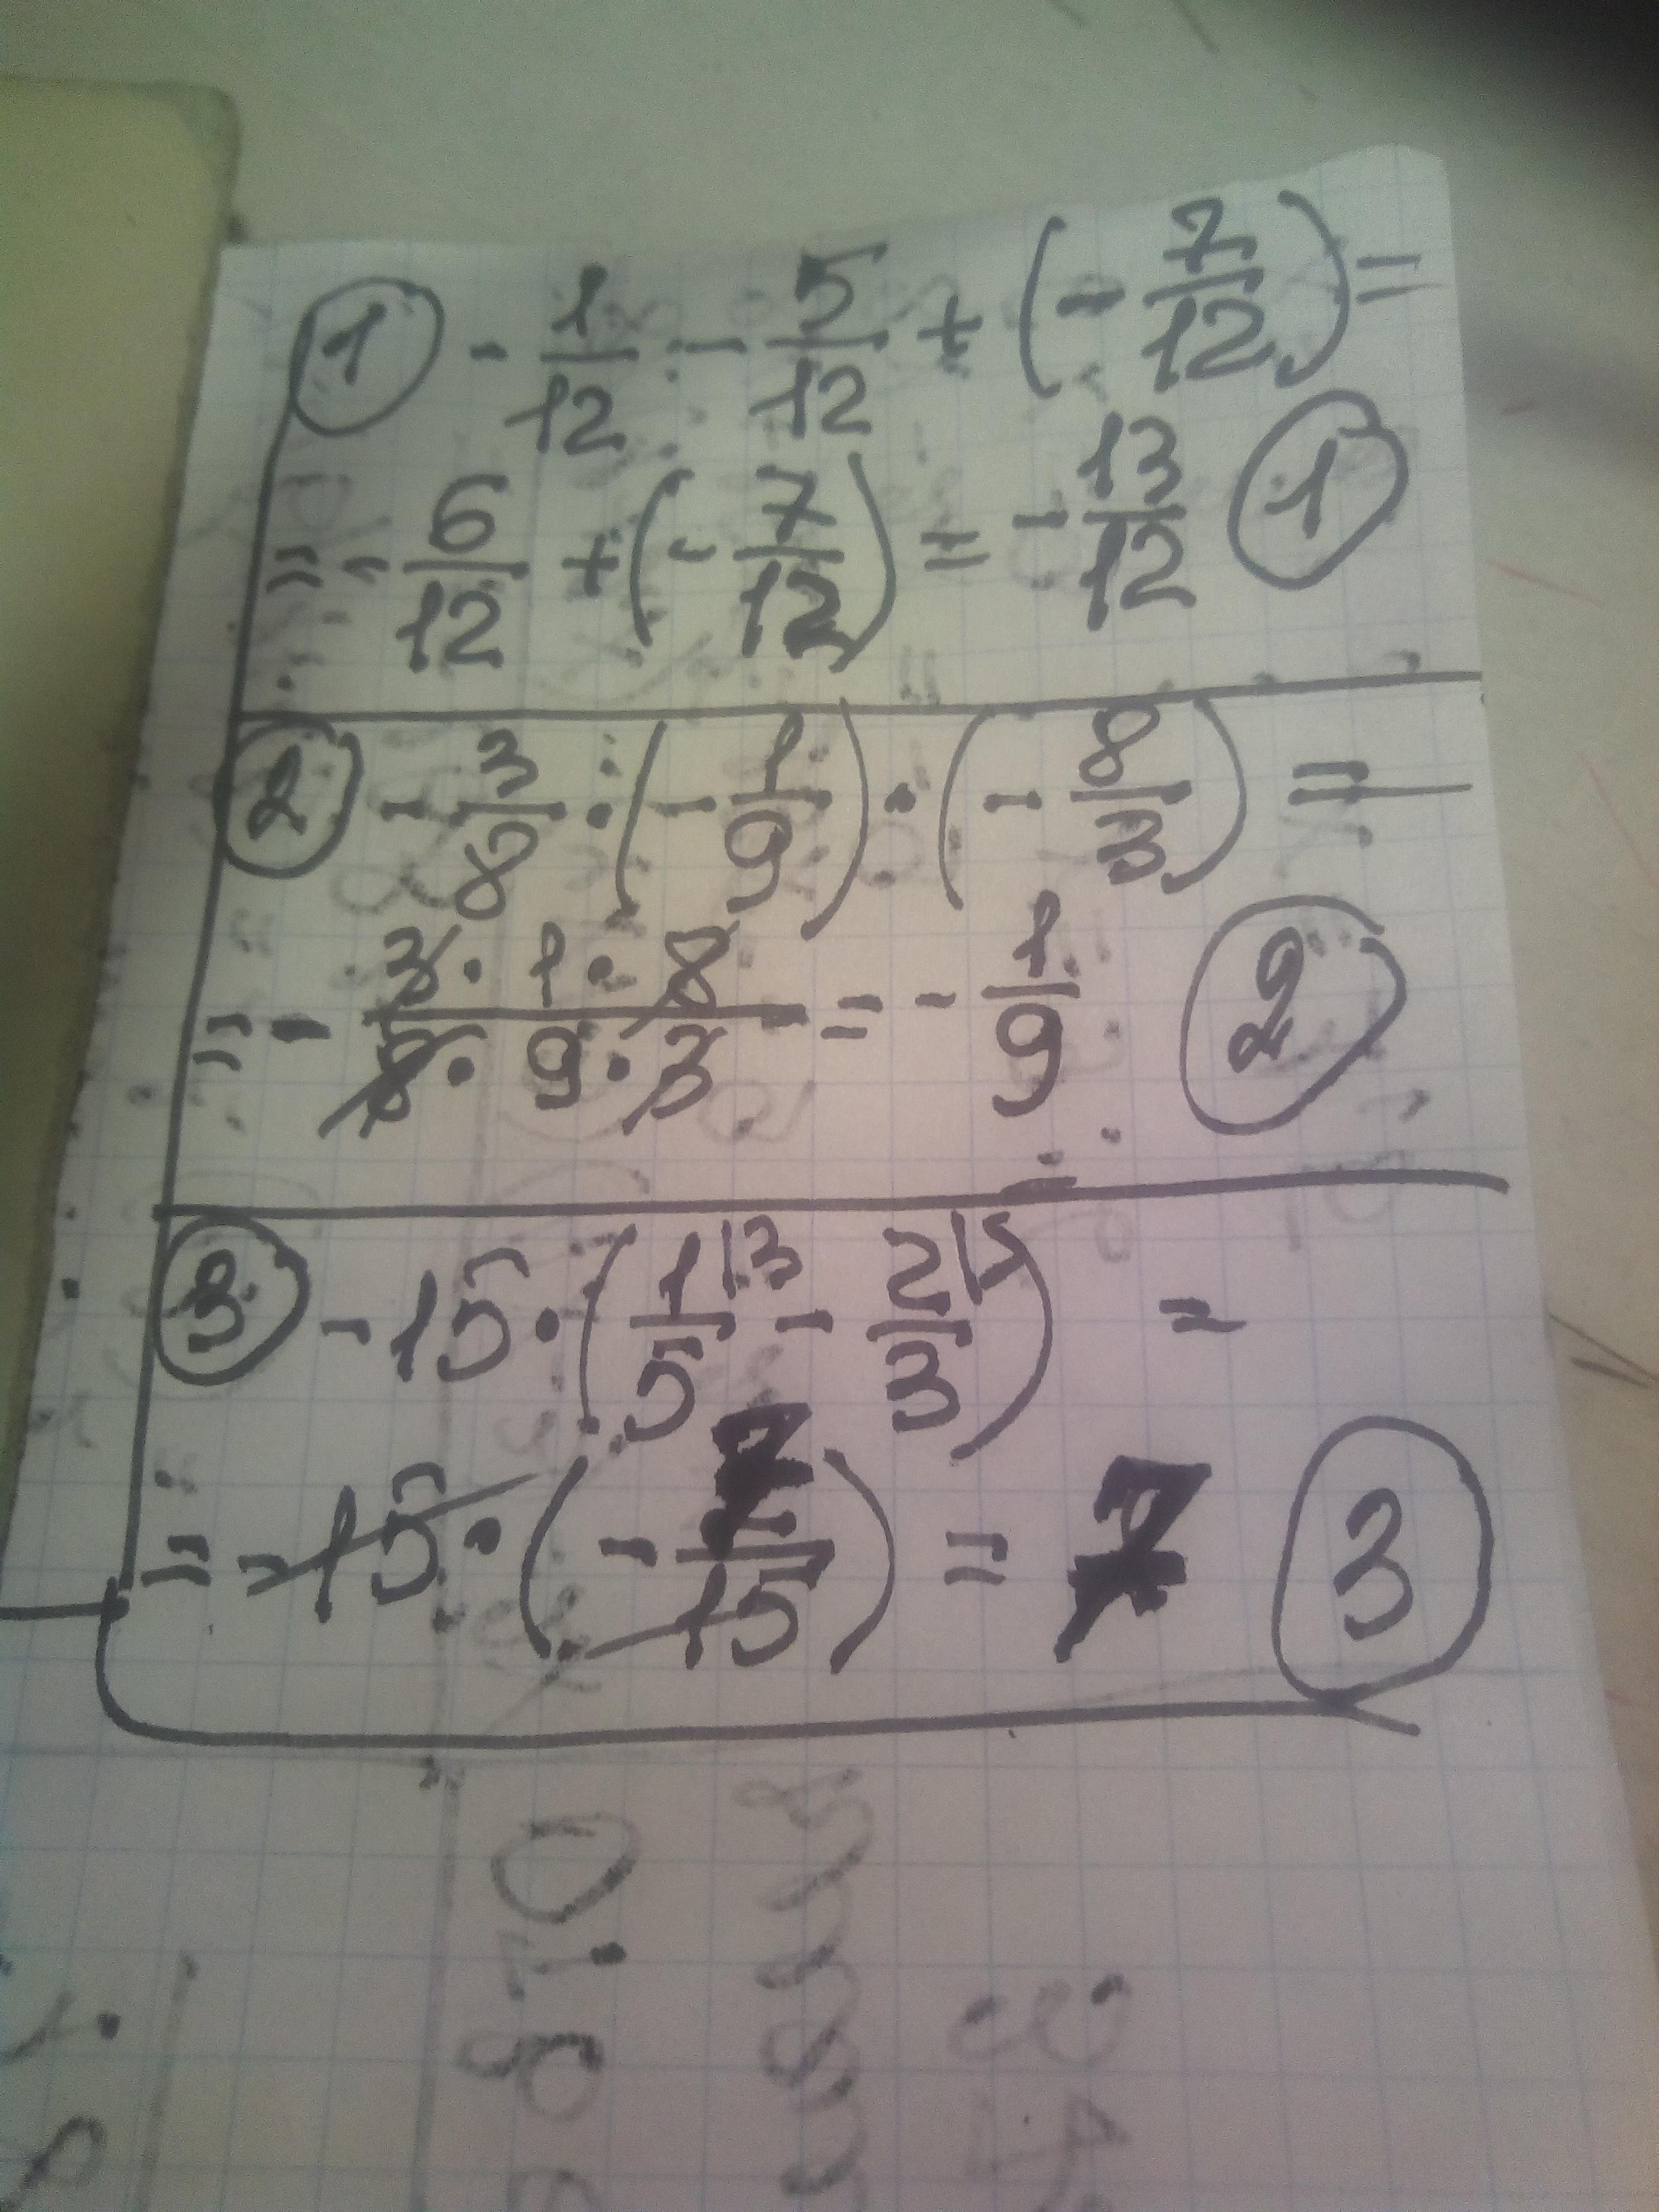 ① - 1/12 - 5/12 + (- 7/12) =
= - 6/12 + (- 7/12) = - 13/12 ①
② - 3/8 · (- 1/9) · (- 8/3) =
= - 3 · 1 · 8 / 8 · 9 · 3 = - 1/9 ②
③ - 15 · (1/5 |3 - 2/3 |5) =
= - 15 · (- 7/15) = 7 ③